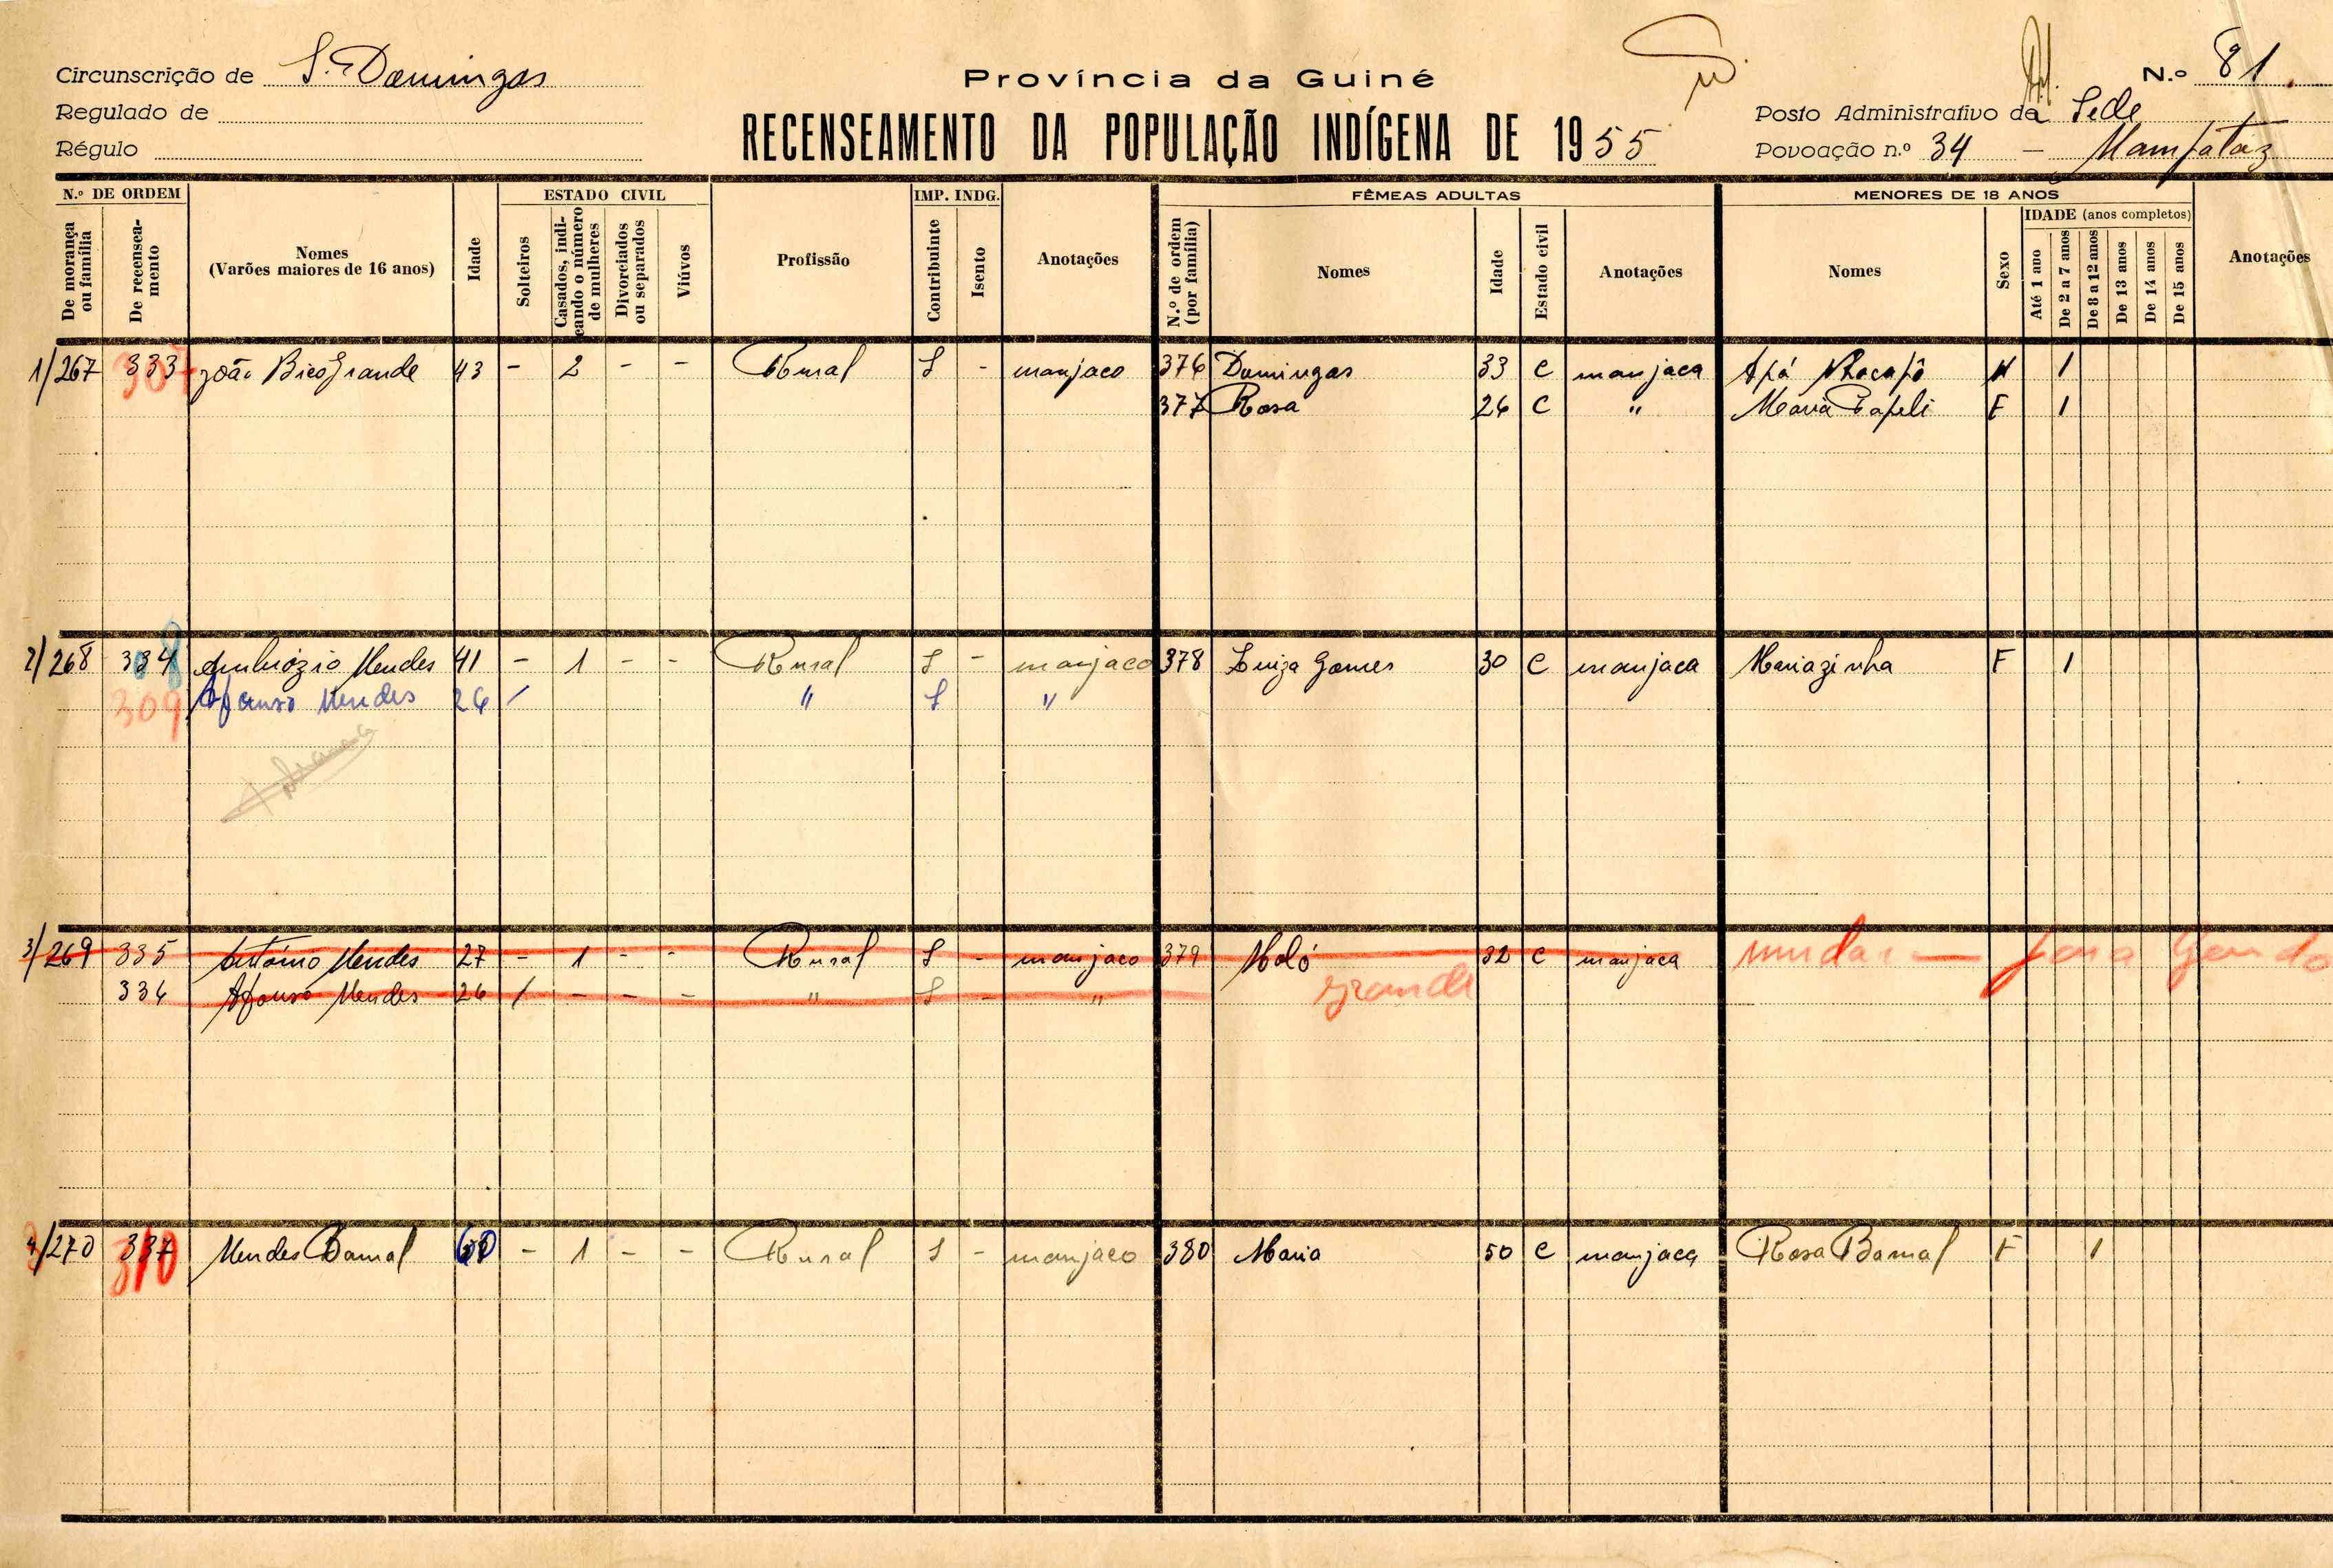 Circunscrição de S. Domingos
Província da Guiné
N.º 81
Regulado de
RECENSEAMENTO DA POPULAÇÃO INDÍGENA DE 1955
Posto Administrativo da Sede
Régulo
Povoação n.º 34 - Mampataz
N.º DE ORDEM ESTADO CIVIL IMP. INDG. FÊMEAS ADULTAS MENORES DE 18 ANOS
De morança ou família De recensea-mento Nomes (Varões maiores de 16 anos) Idade Solteiros Casados, indi-cando o número de mulheres Divorciados ou separados Viúvos Profissão Contribuinte Isento Anotações N.º de ordem (por família) Nomes Idade Estado civil Anotações Nomes Sexo IDADE (anos completos) Até 1 ano De 2 a 7 anos De 8 a 12 anos De 13 anos De 14 anos De 15 anos Anotações
1/267 333 João Bico Grande 43 - 2 - - Rural S - manjaco 376 Domingas 33 C manjaca Apá M 1
377 Rosa 26 C " Maria Papeli F 1
2/268 334 Ambrózio Mendes 41 - 1 - - Rural S - manjaco 378 Luiza Gomes 30 C manjaca Mariazinha F 1
309 Afonso Mendes 26 / " S "
3/269 335 António Mendes 27 - 1 - - Rural S - manjaco 379 Moló 32 C manjaca mudar - para
336 Afonso Mendes 26 / - - - " S - " grande
4/270 337 310 Mendes Bamal 60 - 1 - - Rural S - manjaco 380 Maria 50 C manjaca Rosa Bamal F 1